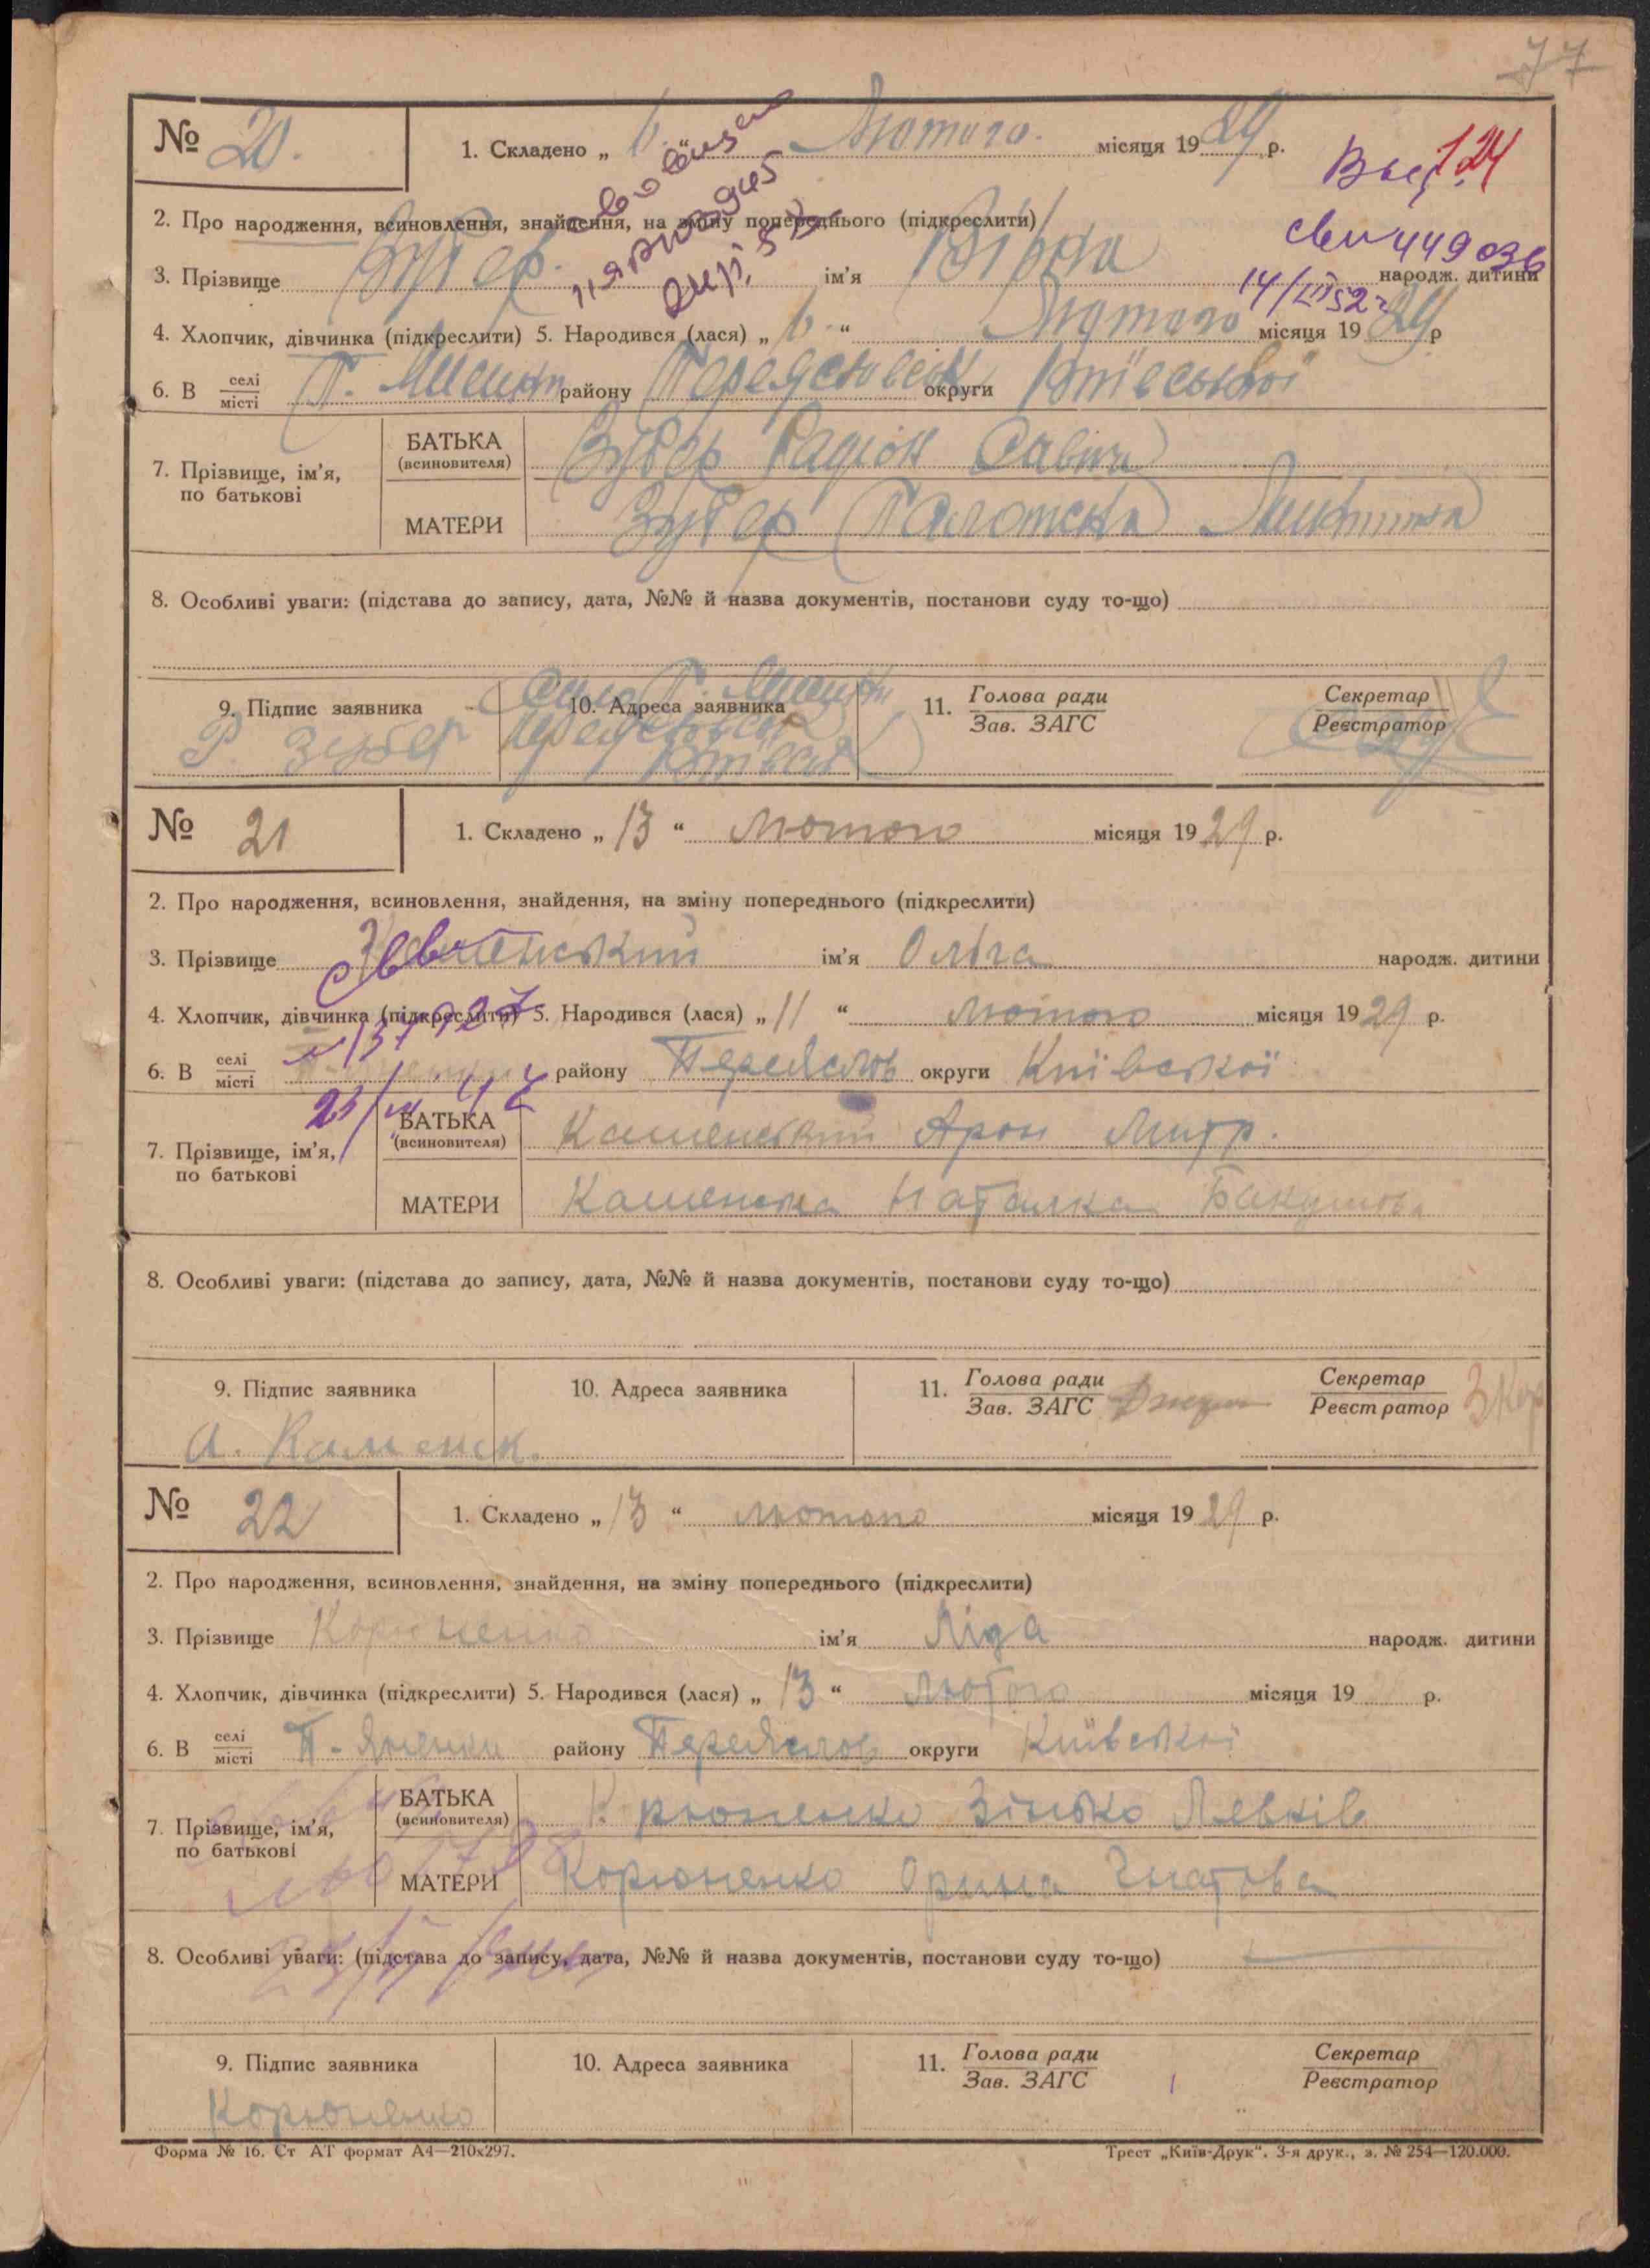 77
№ 20. 1. Складено „ 6. “ Лютого. місяця 19 29 р.
Выд. 124
2. Про народження, всиновлення, знайдення, на зміну попереднього (підкреслити)
св 449036
3. Прізвище Зубер. ім’я Віра народж. дитини
14/III 52 г
4. Хлопчик, дівчинка (підкреслити) 5. Народився (лася) „ 6. “ Лютого місяця 19 29 р
6. В селі/місті районy округи Київської
7. Прізвище, ім’я, по батькові
БАТЬКА (всиновителя) Зубер Радіон Савич
МАТЕРИ Зубер
8. Особливі уваги: (підстава до запису, дата, №№ й назва документів, постанови суду то-що)
9. Підпис заявника 10. Адреса заявника 11. Голова ради/Зав. ЗАГС Секретар/Реєстратор
Р. Зубер
№ 21 1. Складено „ 13 “ Лютого місяця 19 29 р.
2. Про народження, всиновлення, знайдення, на зміну попереднього (підкреслити)
3. Прізвище ім’я Ольга народж. дитини
4. Хлопчик, дівчинка (підкреслити) 5. Народився (лася) „ 11 “ Лютого місяця 19 29 р.
6. В селі/місті району Переяслов округи Київської
7. Прізвище, ім’я, по батькові
БАТЬКА (всиновителя) Каменський Арон Митр.
МАТЕРИ Каменська Наталка
8. Особливі уваги: (підстава до запису, дата, №№ й назва документів, постанови суду то-що)
9. Підпис заявника 10. Адреса заявника 11. Голова ради/Зав. ЗАГС Секретар/Реєстратор
А. Каменск.
№ 22 1. Складено „ 13 “ лютого місяця 19 29 р.
2. Про народження, всиновлення, знайдення, на зміну попереднього (підкреслити)
3. Прізвище Корюненко ім’я Ліда народж. дитини
4. Хлопчик, дівчинка (підкреслити) 5. Народився (лася) „ 13 “ Лютого місяця 19 р.
6. В селі/місті району Переяслов округи Київської
7. Прізвище, ім’я, по батькові
БАТЬКА (всиновителя) Зінько Левків
МАТЕРИ Корюненко Орина Гнатова
8. Особливі уваги: (підстава до запису, дата, №№ й назва документів, постанови суду то-що)
9. Підпис заявника 10. Адреса заявника 11. Голова ради/Зав. ЗАГС Секретар/Реєстратор
Корюненко
Форма № 16. Ст АТ формат А4—210х297. Трест „Київ-Друк“. 3-я друк., з. № 254—120.000.